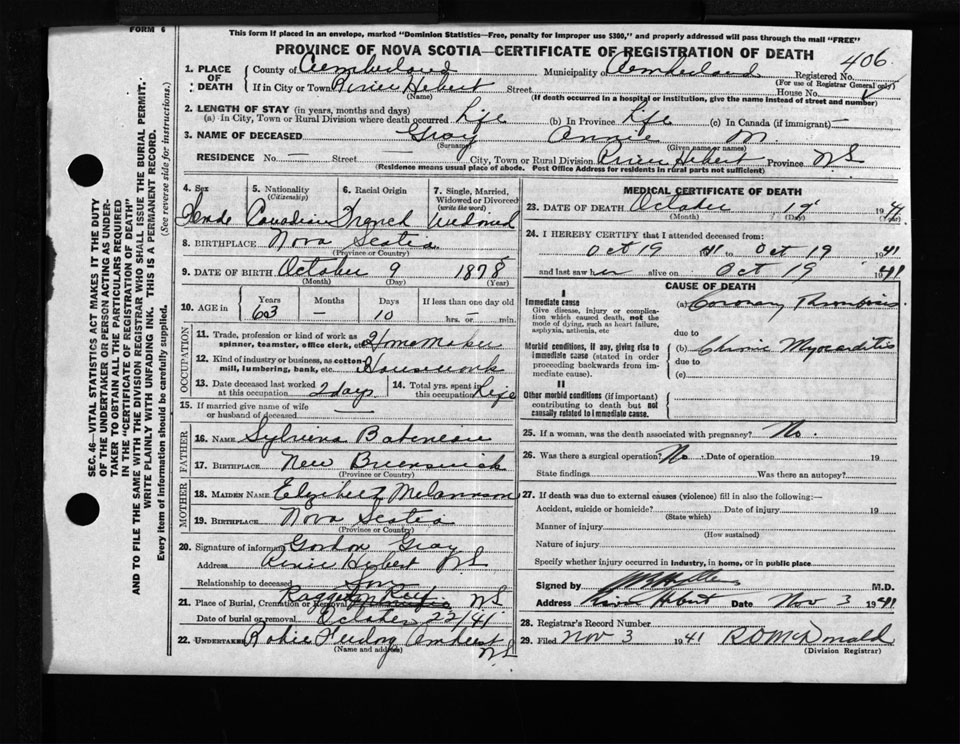 FORM 6
This form if placed in an envelope, marked "Dominion Statistics—Free, penalty for improper use $300," and properly addressed will pass through the mail "FREE"
PROVINCE OF NOVA SCOTIA—CERTIFICATE OF REGISTRATION OF DEATH
406
1. PLACE OF DEATH County of Cumberland Municipality of Cumberland Registered No.
(For use of Registrar General only)
If in City or Town River Hebert Street House No.
(Name) (If death occurred in a hospital or institution, give the name instead of street and number)
2. LENGTH OF STAY (in years, months and days)
(a) In City, Town or Rural Division where death occurred Life (b) In Province Life (c) In Canada (if immigrant) —
3. NAME OF DECEASED Gray Annie M
(Surname) (Given name or names)
RESIDENCE No. — Street — City, Town or Rural Division River Hebert Province NS
(Residence means usual place of abode. Post Office Address for residents in rural parts not sufficient)
4. Sex 5. Nationality (Citizenship) 6. Racial Origin 7. Single, Married, Widowed or Divorced (write the word)
Canadian French Widowed
8. BIRTHPLACE Nova Scotia
(Province or Country)
9. DATE OF BIRTH October 9 1878
(Month) (Day) (Year)
10. AGE in Years Months Days If less than one day old
63 — 10 hrs. or — min.
OCCUPATION
11. Trade, profession or kind of work as spinner, teamster, office clerk, etc. Home Maker
12. Kind of industry or business, as cotton-mill, lumbering, bank, etc. Housework
13. Date deceased last worked at this occupation 2 days 14. Total yrs. spent in this occupation Life
15. If married give name of wife or husband of deceased —
FATHER
16. NAME Babineau
17. BIRTHPLACE New Brunswick
(Province or Country)
MOTHER
18. MAIDEN NAME
19. BIRTHPLACE Nova Scotia
(Province or Country)
20. Signature of informant Gordon Gray
Address River Hebert NS
Relationship to deceased Son
21. Place of Burial, Cremation or Removal Ragged Reef NS
Date of burial or removal October 22/41
22. UNDERTAKER Amherst NS
(Name and address)
MEDICAL CERTIFICATE OF DEATH
23. DATE OF DEATH October 19 1941
(Month) (Day) (Year)
24. I HEREBY CERTIFY that I attended deceased from:
Oct 19 41 to Oct 19 1941
and last saw her alive on Oct 19 1941
CAUSE OF DEATH
I
Immediate cause
Give disease, injury or complication which caused death, not the mode of dying, such as heart failure, asphyxia, asthenia, etc
(a) Coronary Thrombosis
due to
Morbid conditions, if any, giving rise to immediate cause (stated in order proceeding backwards from immediate cause).
(b) Chronic Myocarditis
due to
(c)
II
Other morbid conditions (if important) contributing to death but not causally related to immediate cause.
25. If a woman, was the death associated with pregnancy? No
26. Was there a surgical operation? No Date of operation 19
State findings Was there an autopsy?
27. If death was due to external causes (violence) fill in also the following:—
Accident, suicide or homicide? Date of injury 19
(State which)
Manner of injury
(How sustained)
Nature of injury
Specify whether injury occurred in industry, in home, or in public place
Signed by M.D.
Address River Hebert Date Nov 3 1941
28. Registrar's Record Number
29. Filed Nov 3 1941 R O McDonald
(Division Registrar)
SEC. 46—VITAL STATISTICS ACT MAKES IT THE DUTY
OF THE UNDERTAKER OR PERSON ACTING AS UNDER-
TAKER TO OBTAIN ALL THE PARTICULARS REQUIRED
IN THE "CERTIFICATE OF REGISTRATION OF DEATH"
AND TO FILE THE SAME WITH THE DIVISION REGISTRAR WHO SHALL ISSUE THE BURIAL PERMIT.
WRITE PLAINLY WITH UNFADING INK. THIS IS A PERMANENT RECORD.
Every item of information should be carefully supplied. (See reverse side for instructions.)